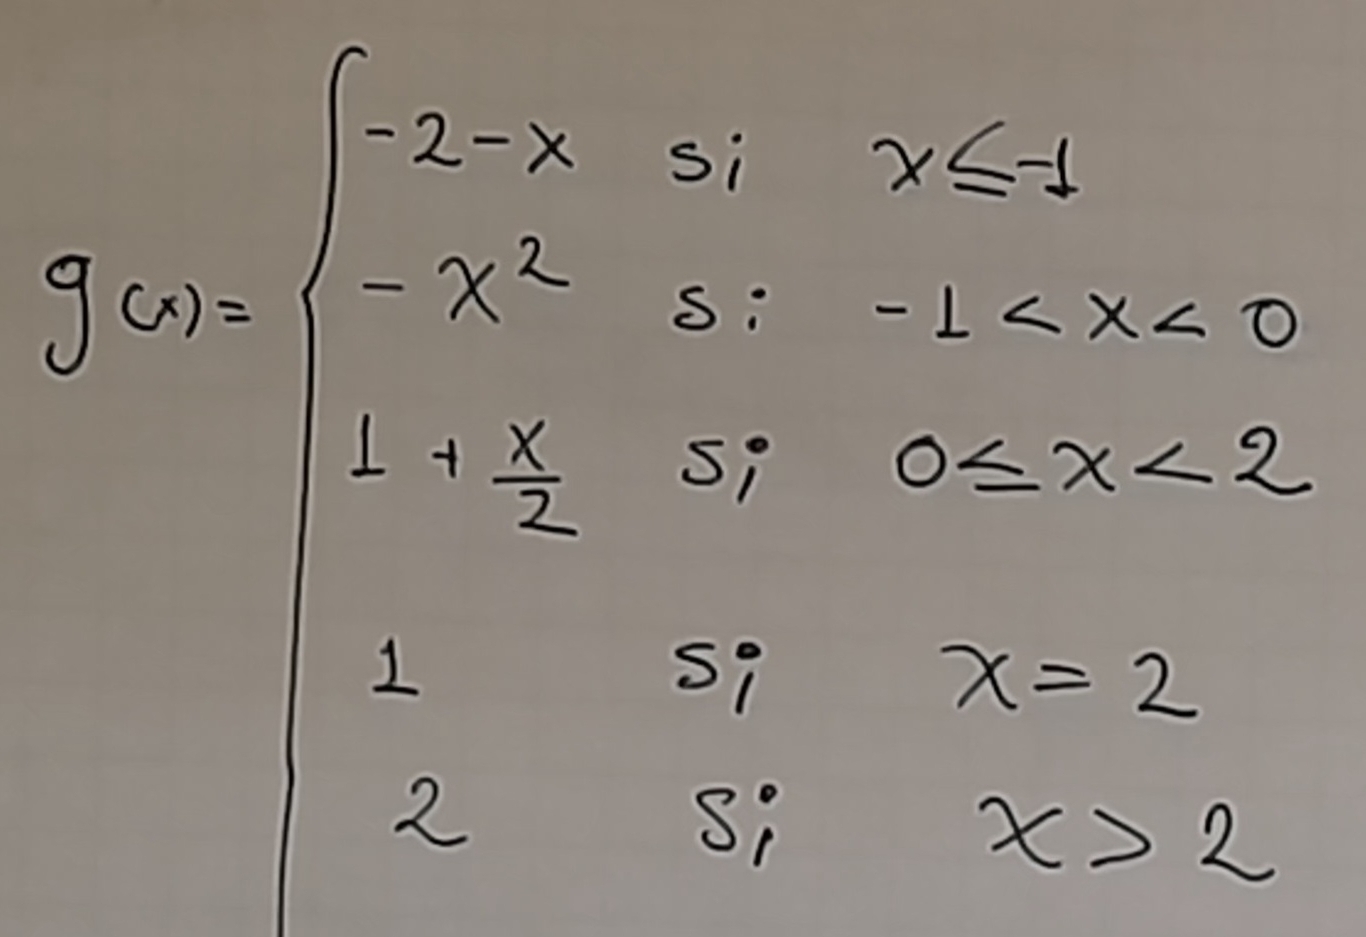 -2-x si x≤-1
g(x)= -x² si -1<x<0
1+x/2 si 0≤x<2
1 si x=2
2 si x>2